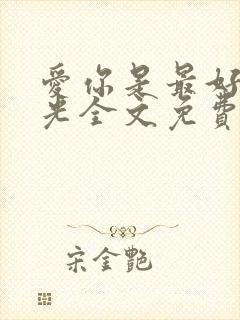 爱你是最好
光全文免費
宋金艷